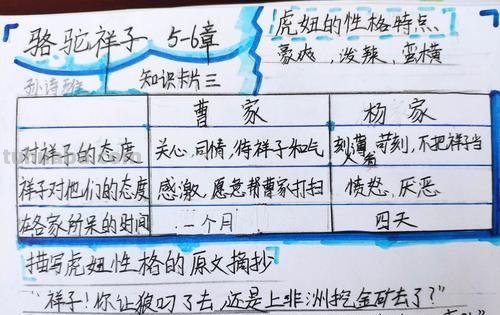 骆驼祥子 5-6章
虎妞的性格特点
豪爽，泼辣，蛮横
孙诗雅
知识卡片三
曹家 杨家
对祥子的态度 关心，同情，待祥子和气 刻薄，苛刻，不把祥子当人看
祥子对他们的态度 感激，愿意帮曹家打扫 愤怒、厌恶
在各家所呆的时间 一个月 四天
描写虎妞性格的原文摘抄
"祥子！你让狼叼了去，还是上非洲挖金矿去了？"